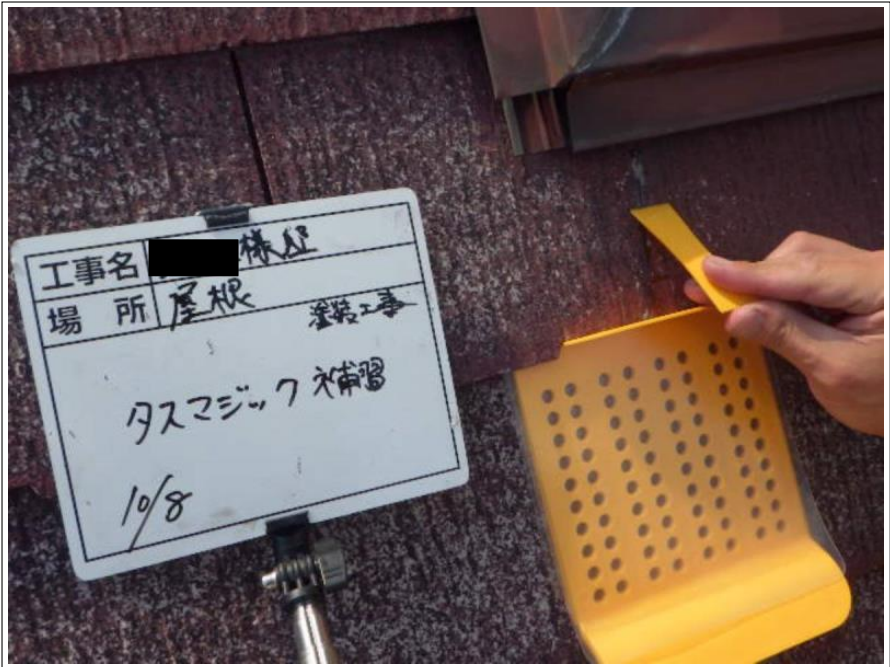 工事名 様邸
場所 屋根
塗装工事
タスマジック補習
10/8